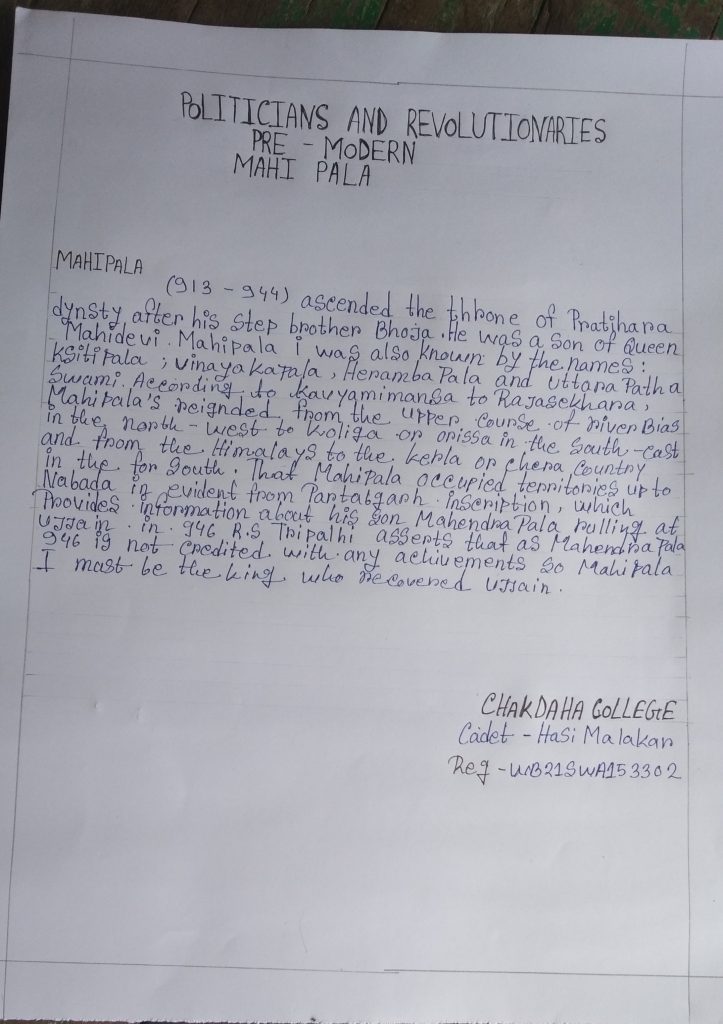 POLITICIANS AND REVOLUTIONARIES
PRE - MODERN
MAHI PALA
MAHIPALA
(913 - 944) ascended the throne of Pratihara
dynsty after his step brother Bhoja. He was a son of Queen
Mahidevi. Mahipala i was also known by the names:
Ksitipala ; vinayakapala, HerambaPala and Uttara Patha
Swami. According to Kavyamimansa to Rajasekhara,
Mahipala's reignded from the upper course of river Bias
in the north - west to Koliga or orissa in the South - east
and from the Himalays to the Kerla or chera Country
in the for South. That Mahipala occupied territories up to
Nabada is evident from Partabgarh inscription, which
Provides information about his son MahendraPala rulling at
Ujjain in 946 R.S Tripathi asserts that as MahendraPala
946 is not credited with any achivements so Mahipala
I must be the king who recovered Ujjain.
CHAKDAHA COLLEGE
Cadet - Hasi Malakar
Reg - WB21SWA153302